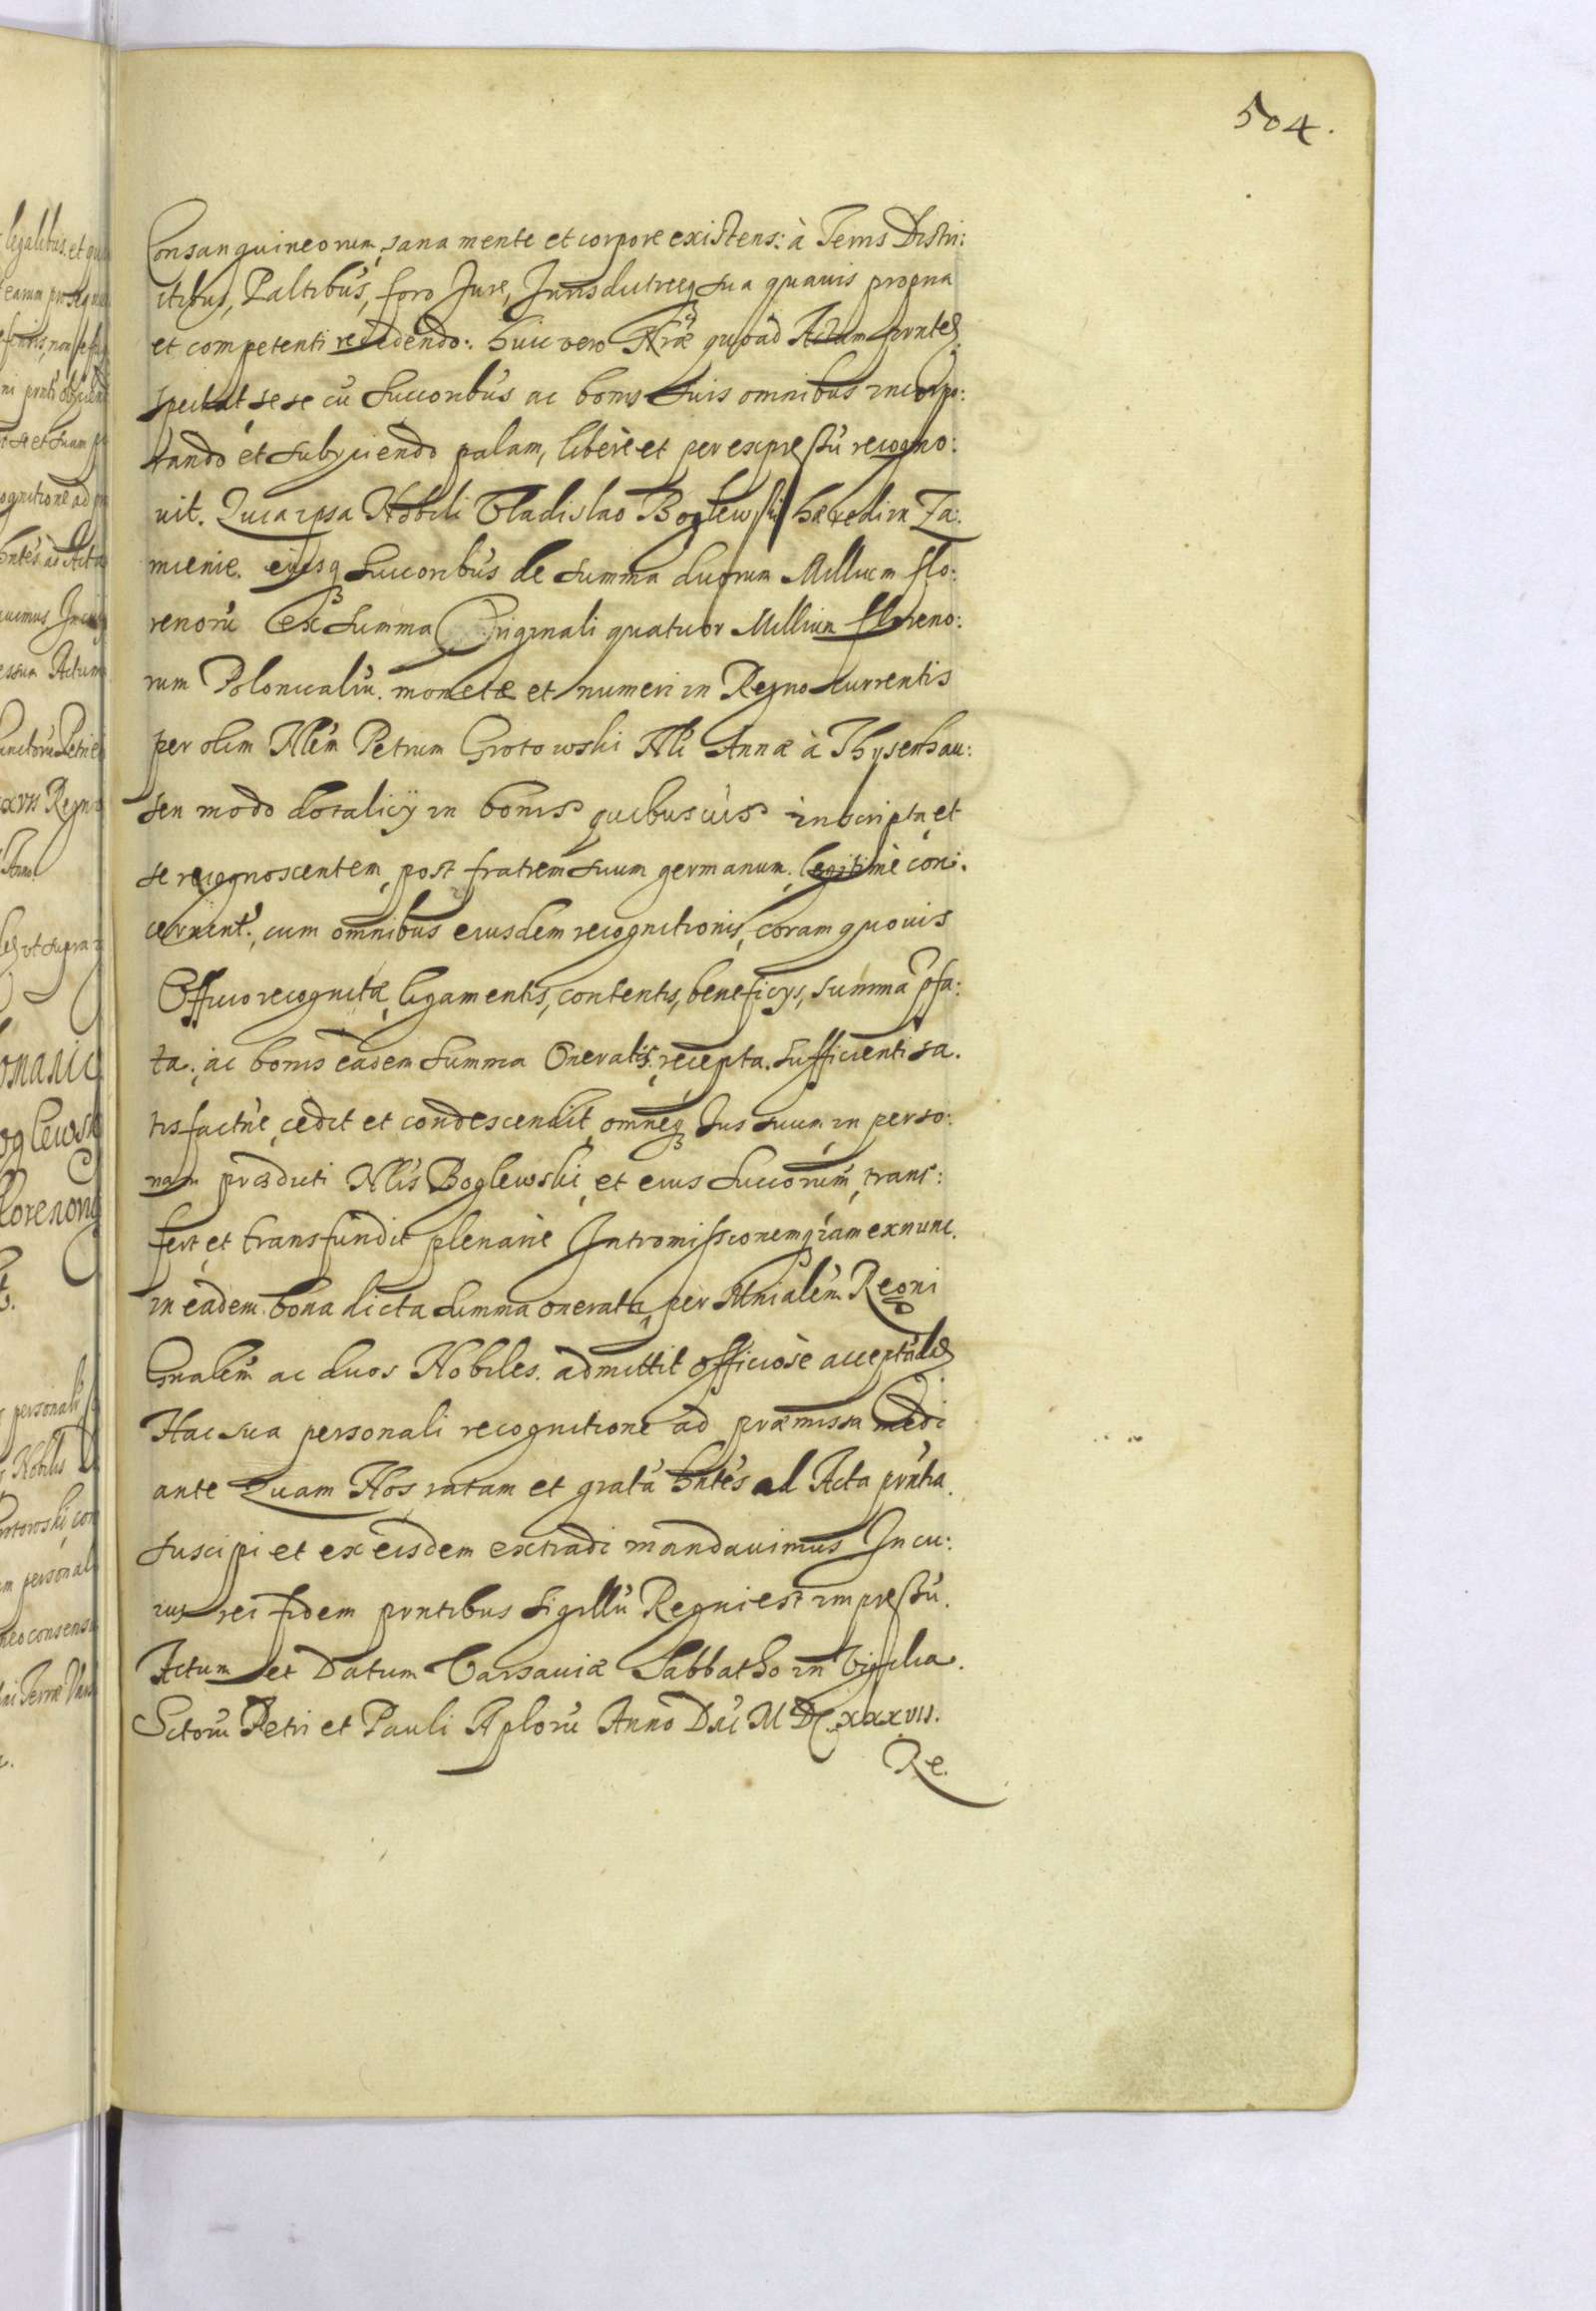 504.
Consanguineorum, sana mente et corpore existens: à Terris Distri:
ctibus, Paltibus, foro Jure, Jurisdictreq sua quauis propria
et competenti recedendo: huic vero Nrae quoad Actum pnte
spectat, sese cu Succoribus ac bonis suis omnibus incorpo:
rando et subyciendo palam, libere et per expressu recogno:
uit. Quia ipsa Nobili Vladislao Boglewski haeredi in Za:
mienie. eiusq Succoribus de summa duorum Millium flo:
renoru ex Summa Originali quatuor Millium floreno:
rum Polonicaliu. monetae et numeri in Regno currentis
per olim Nlem Petrum Grotowski Nli Annae à Thysenhau:
sen modo dotalicÿ in bonis quibusuis inscripta, et
se recognoscentem, post fratrem suum germanum, legitime con.
cernent, cum omnibus eiusdem recognitionis, coram quouis
Officio recognitae, ligamentis, contentis, beneficys, summa pfa:
ta, ac bonis eadem Summa Oneratis, recepta. sufficienti sa.
tisfactne, cedit et condescendit, omneq Jus suum, in perso:
nam praedicti Nlis Boglewski, et eius Succorum, trans:
fert, et transfundit plenarie Intromissionemq iam exnunc.
in eadem bona dicta Summa onerata, per Mnialem Regni
Gnalem ac duos Nobiles. admittit officiose acceptada
Hac sua personali recognitione ad praemissa medi
ante Quam Nos ratam et grata hntes ad Acta pntia
suscipi et ex eisdem extradi mandauimus In cu:
ius rei fidem pntibus Sigillu Regni est impressu.
Actum et Datum Varsauiae Sabbatho in Vigilia.
Sctoru Petri et Pauli Aploru Anno Dni MDC.xxxvii.
Re.